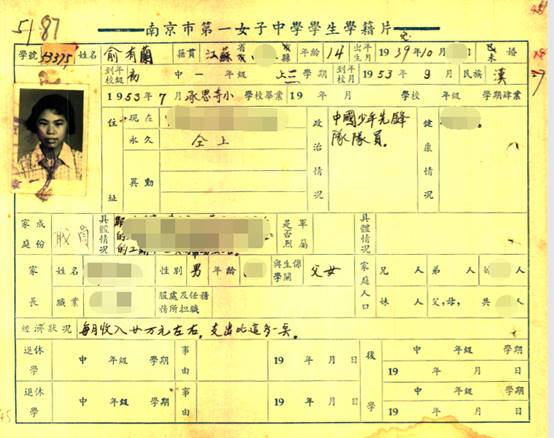 南京市第一女子中学學生學籍片
5187
學號 13375 姓名 俞有蘭 籍貫 江蘇 省 縣 年齡 14 出生年月 1939年10月 已未 婚
到校年級 初 中 一 年級 上 學期 到校年月 1953年9月 民族 漢
1953年7月 承恩寺小 學校畢業 19 年 月 學校 年級 學期肄業
住址 現在
永久 仝上
異動
政治情況 中國少年先鋒隊隊員。
健康情況
家庭成份 職員 具體情況 是否 軍烈屬 具體情況
家長 姓名 性別 男 年齡 與學生關係 父女 家庭人口 兄 人 弟 人 人
職業 服務處所及擔任職務 妹 人 父,母, 共 人
經濟狀況 每月收入廿万元左右,支出比這多一些。
退休學 中 年級 學期 事由 19 年 月 日 復學 中 年級 學期
19 年 月 日
退休學 中 年級 學期 事由 19 年 月 日 中 年級 學期
19 年 月 日